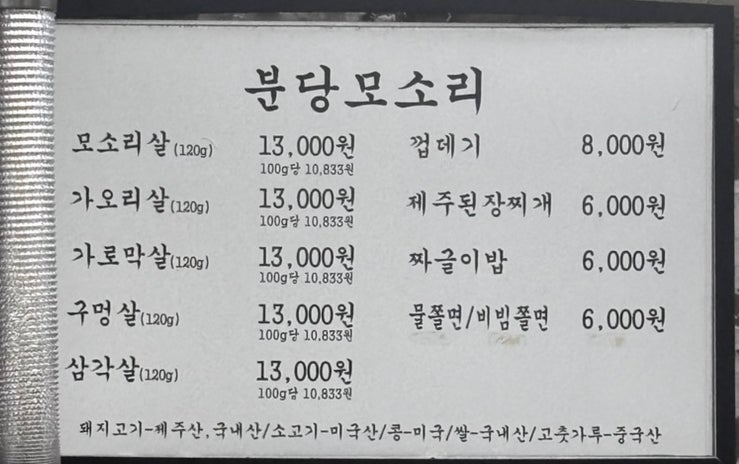 분당모소리
모소리살(120g) 13,000원 껍데기 8,000원
100g당 10,833원
가오리살(120g) 13,000원 제주된장찌개 6,000원
100g당 10,833원
가로막살(120g) 13,000원 짜글이밥 6,000원
100g당 10,833원
구멍살(120g) 13,000원 물쫄면/비빔쫄면 6,000원
100g당 10,833원
삼각살(120g) 13,000원
100g당 10,833원
돼지고기-제주산,국내산/소고기-미국산/콩-미국/쌀-국내산/고춧가루-중국산